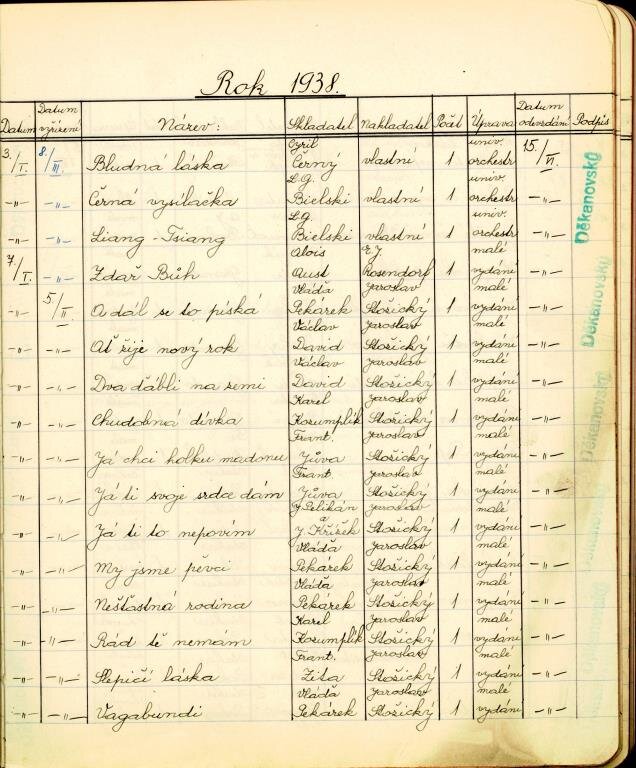 Rok 1938.
Datum Datum vzříření Název: Skladatel Nakladatel Počet Úprava Datum odevzdání Podpis
3./I. 8/III. Bludná láska Cyril Černý vlastní 1 univ. orchestr 15./VI. Děkanovský
-"- -"- Černá vysílačka L.G. Bielski vlastní 1 univ. orchestr -"-
-"- -"- Liang-Tsiang L.g. Bielski vlastní 1 univ. orchestr -"- Děkanovský
7./I. -"- Zdař Bůh Alois Aust E.J. Rosendorf 1 malé vydání -"-
-"- 5./II. A dál se to píská Vláďa Pekárek Jaroslav Stožický 1 malé vydání -"- Děkanovský
-"- -"- Ať žije nový rok Václav David Jaroslav Stožický 1 malé vydání -"-
-"- -"- Dva ďábli na zemi Václav David Jaroslav Stožický 1 malé vydání -"-
-"- -"- Chudobná dívka Karel Kozumplík Jaroslav Stožický 1 malé vydání -"- Děkanovský
-"- -"- Já chci holku madonu Frant. Jůva Jaroslav Stožický 1 malé vydání -"-
-"- -"- Já ti svoje srdce dám Frant. Jůva Jaroslav Stožický 1 malé vydání -"-
-"- -"- Já ti to nepovím J. Pelikán a J. Křížek Jaroslav Stožický 1 malé vydání -"-
-"- -"- My jsme pěvci Vláďa Pekárek Jaroslav Stožický 1 malé vydání -"-
-"- -"- Nešťastná rodina Vláďa Pekárek Jaroslav Stožický 1 malé vydání -"-
-"- -"- Rád tě nemám Karel Kozumplík Jaroslav Stožický 1 malé vydání -"-
-"- -"- Slepičí láska Frant. Zita Jaroslav Stožický 1 malé vydání -"-
-"- -"- Vagabundi Vláďa Pekárek Jaroslav Stožický 1 malé vydání -"-